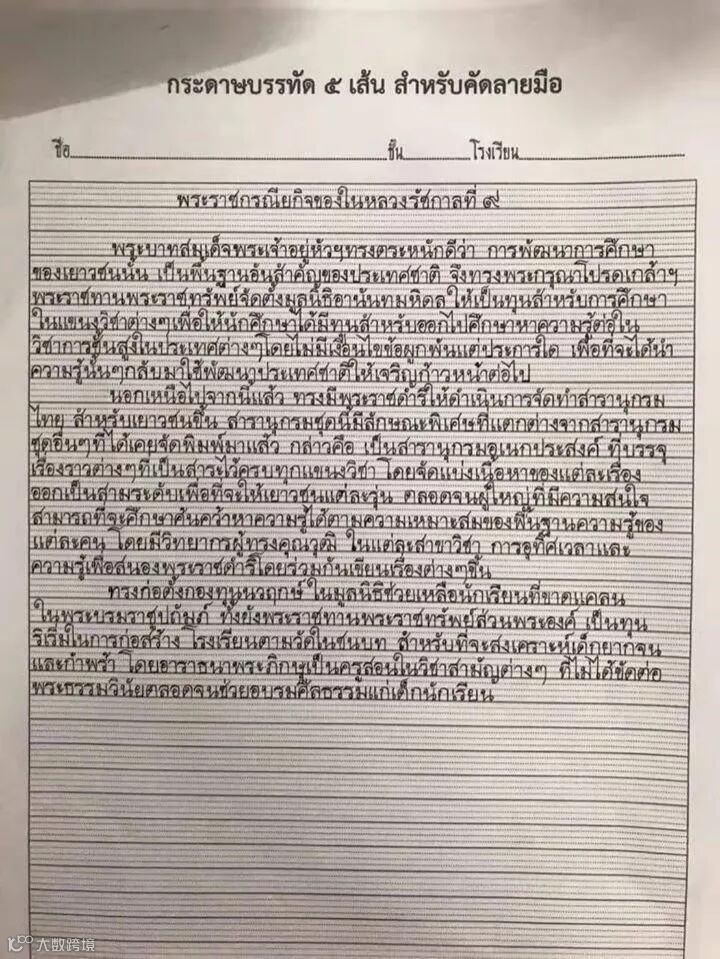 กระดาษบรรทัด ๕ เส้น สำหรับคัดลายมือ
ชื่อ ชั้น โรงเรียน
พระราชกรณียกิจของในหลวงรัชกาลที่ ๙
พระบาทสมเด็จพระเจ้าอยู่หัวฯทรงตระหนักดีว่า การพัฒนาการศึกษา
ของเยาวชนนั้น เป็นพื้นฐานอันสำคัญของประเทศชาติ จึงทรงพระกรุณาโปรดเกล้าฯ
พระราชทานพระราชทรัพย์จัดตั้งมูลนิธิอานันทมหิดล ให้เป็นทุนสำหรับการศึกษา
ในแขนงวิชาต่างๆเพื่อให้นักศึกษาได้มีทุนสำหรับออกไปศึกษาหาความรู้ต่อใน
วิชาการชั้นสูงในประเทศต่างๆโดยไม่มีเงื่อนไขข้อผูกพันแต่ประการใด เพื่อที่จะได้นำ
ความรู้นั้นๆกลับมาใช้พัฒนาประเทศชาติให้เจริญก้าวหน้าต่อไป
นอกเหนือไปจากนี้แล้ว ทรงมีพระราชดำริให้ดำเนินการจัดทำสารานุกรม
ไทย สำหรับเยาวชนขึ้น สารานุกรมชุดนี้มีลักษณะพิเศษที่แตกต่างจากสารานุกรม
ชุดอื่นๆที่ได้เคยจัดพิมพ์มาแล้ว กล่าวคือ เป็นสารานุกรมอเนกประสงค์ ที่บรรจุ
เรื่องราวต่างๆที่เป็นสาระไว้ครบทุกแขนงวิชา โดยจัดแบ่งเนื้อหาของแต่ละเรื่อง
ออกเป็นสามระดับเพื่อที่จะให้เยาวชนแต่ละรุ่น ตลอดจนผู้ใหญ่ที่มีความสนใจ
สามารถที่จะศึกษาค้นคว้าหาความรู้ได้ตามความเหมาะสมของพื้นฐานความรู้ของ
แต่ละคน โดยมีวิทยากรผู้ทรงคุณวุฒิ ในแต่ละสาขาวิชา การอุทิศเวลาและ
ความรู้เพื่อสนองพระราชดำริโดยร่วมกันเขียนเรื่องต่างๆขึ้น
ทรงก่อตั้งกองทุนนวฤกษ์ ในมูลนิธิช่วยเหลือนักเรียนที่ขาดแคลน
ในพระบรมราชูปถัมภ์ ทั้งยังพระราชทานพระราชทรัพย์ส่วนพระองค์ เป็นทุน
ริเริ่มในการก่อสร้าง โรงเรียนตามวัดในชนบท สำหรับที่จะสงเคราะห์เด็กยากจน
และกำพร้า โดยอาราธนาพระภิกษุเป็นครูสอนในวิชาสามัญต่างๆ ที่ไม่ได้ขัดต่อ
พระธรรมวินัยตลอดจนช่วยอบรมศีลธรรมแก่เด็กนักเรียน
大数跨境